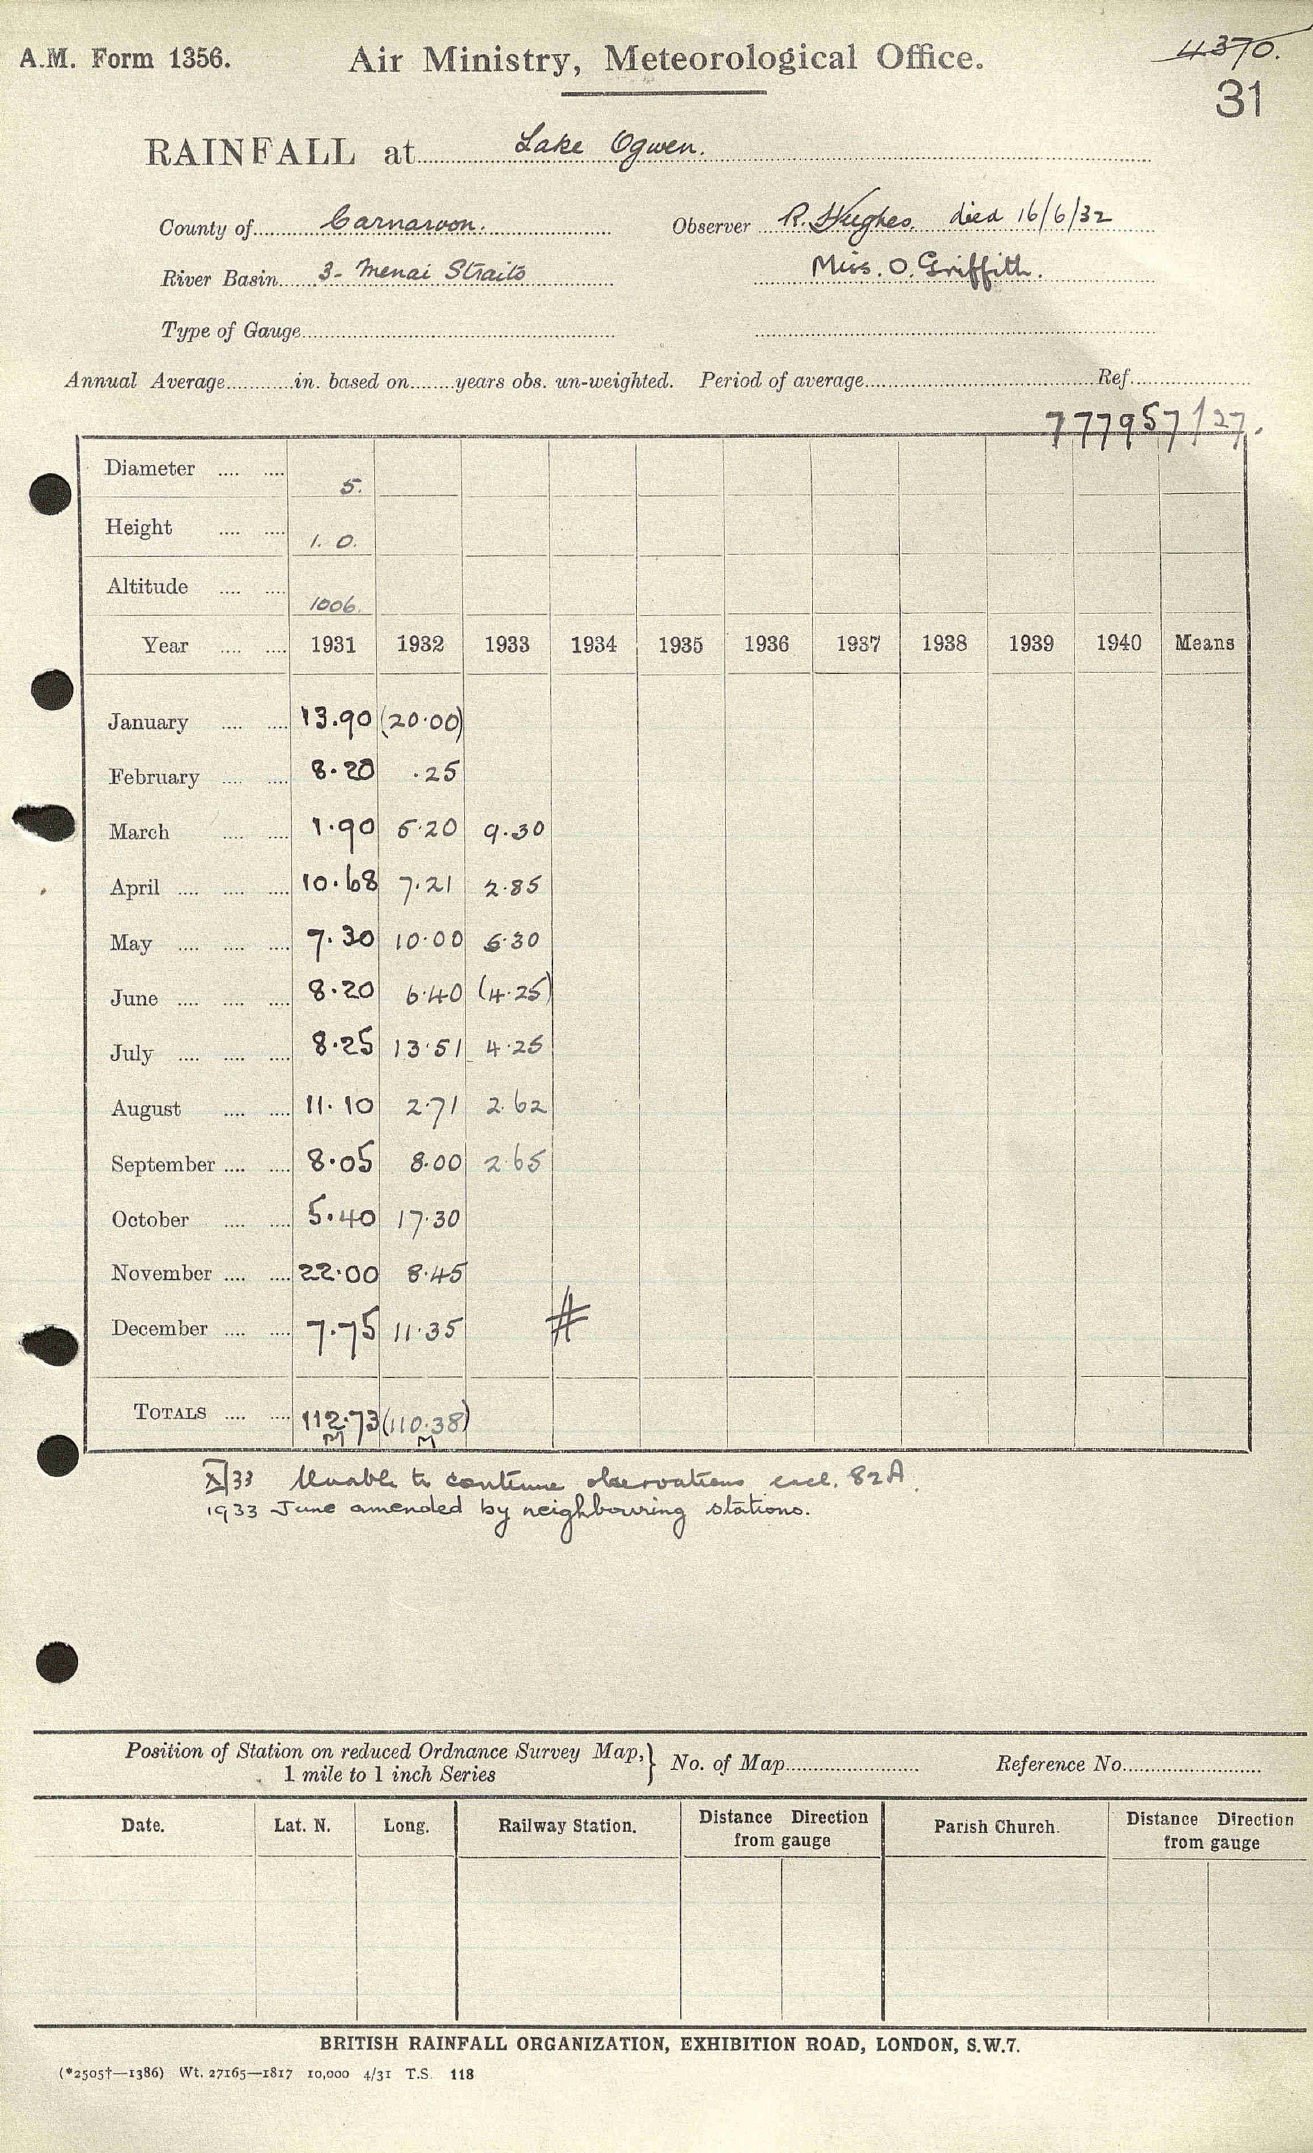 A.M. Form 1356. Air Ministry, Meteorological Office. 4370.
31
RAINFALL at Lake Ogwen.
County of Carnarvon. Observer R. Hughes. died 16/6/32
River Basin 3- Menai Straits Miss. O. Griffith.
Type of Gauge
Annual Average in. based on years obs. un-weighted. Period of average Ref
777957/27.
Diameter .... .... 5.
Height .... .... 1. 0.
Altitude .... .... 1006.
Year .... .... 1931 1932 1933 1934 1935 1936 1937 1938 1939 1940 Means
January .... .... 13.90 (20.00)
February .... .... 8.20 .25
March .... .... 1.90 5.20 9.30
April .... .... .... 10.68 7.21 2.85
May .... .... .... 7.30 10.00 5.30
June .... .... .... 8.20 6.40 (4.25)
July .... .... .... 8.25 13.51 4.25
August .... .... 11.10 2.71 2.62
September .... .... 8.05 8.00 2.65
October .... .... 5.40 17.30
November .... .... 22.00 8.45
December .... .... 7.75 11.35 #
TOTALS .... .... 112.73 (110.38)
M M
X/33 Unable to continue observations encl. 82A.
1933 June amended by neighbouring stations.
Position of Station on reduced Ordnance Survey Map, } No. of Map Reference No.
1 mile to 1 inch Series
Date. Lat. N. Long. Railway Station. Distance Direction Parish Church. Distance Direction
from gauge from gauge
BRITISH RAINFALL ORGANIZATION, EXHIBITION ROAD, LONDON, S.W.7.
(*2505†—1386) Wt. 27165—1817 10,000 4/31 T.S. 118